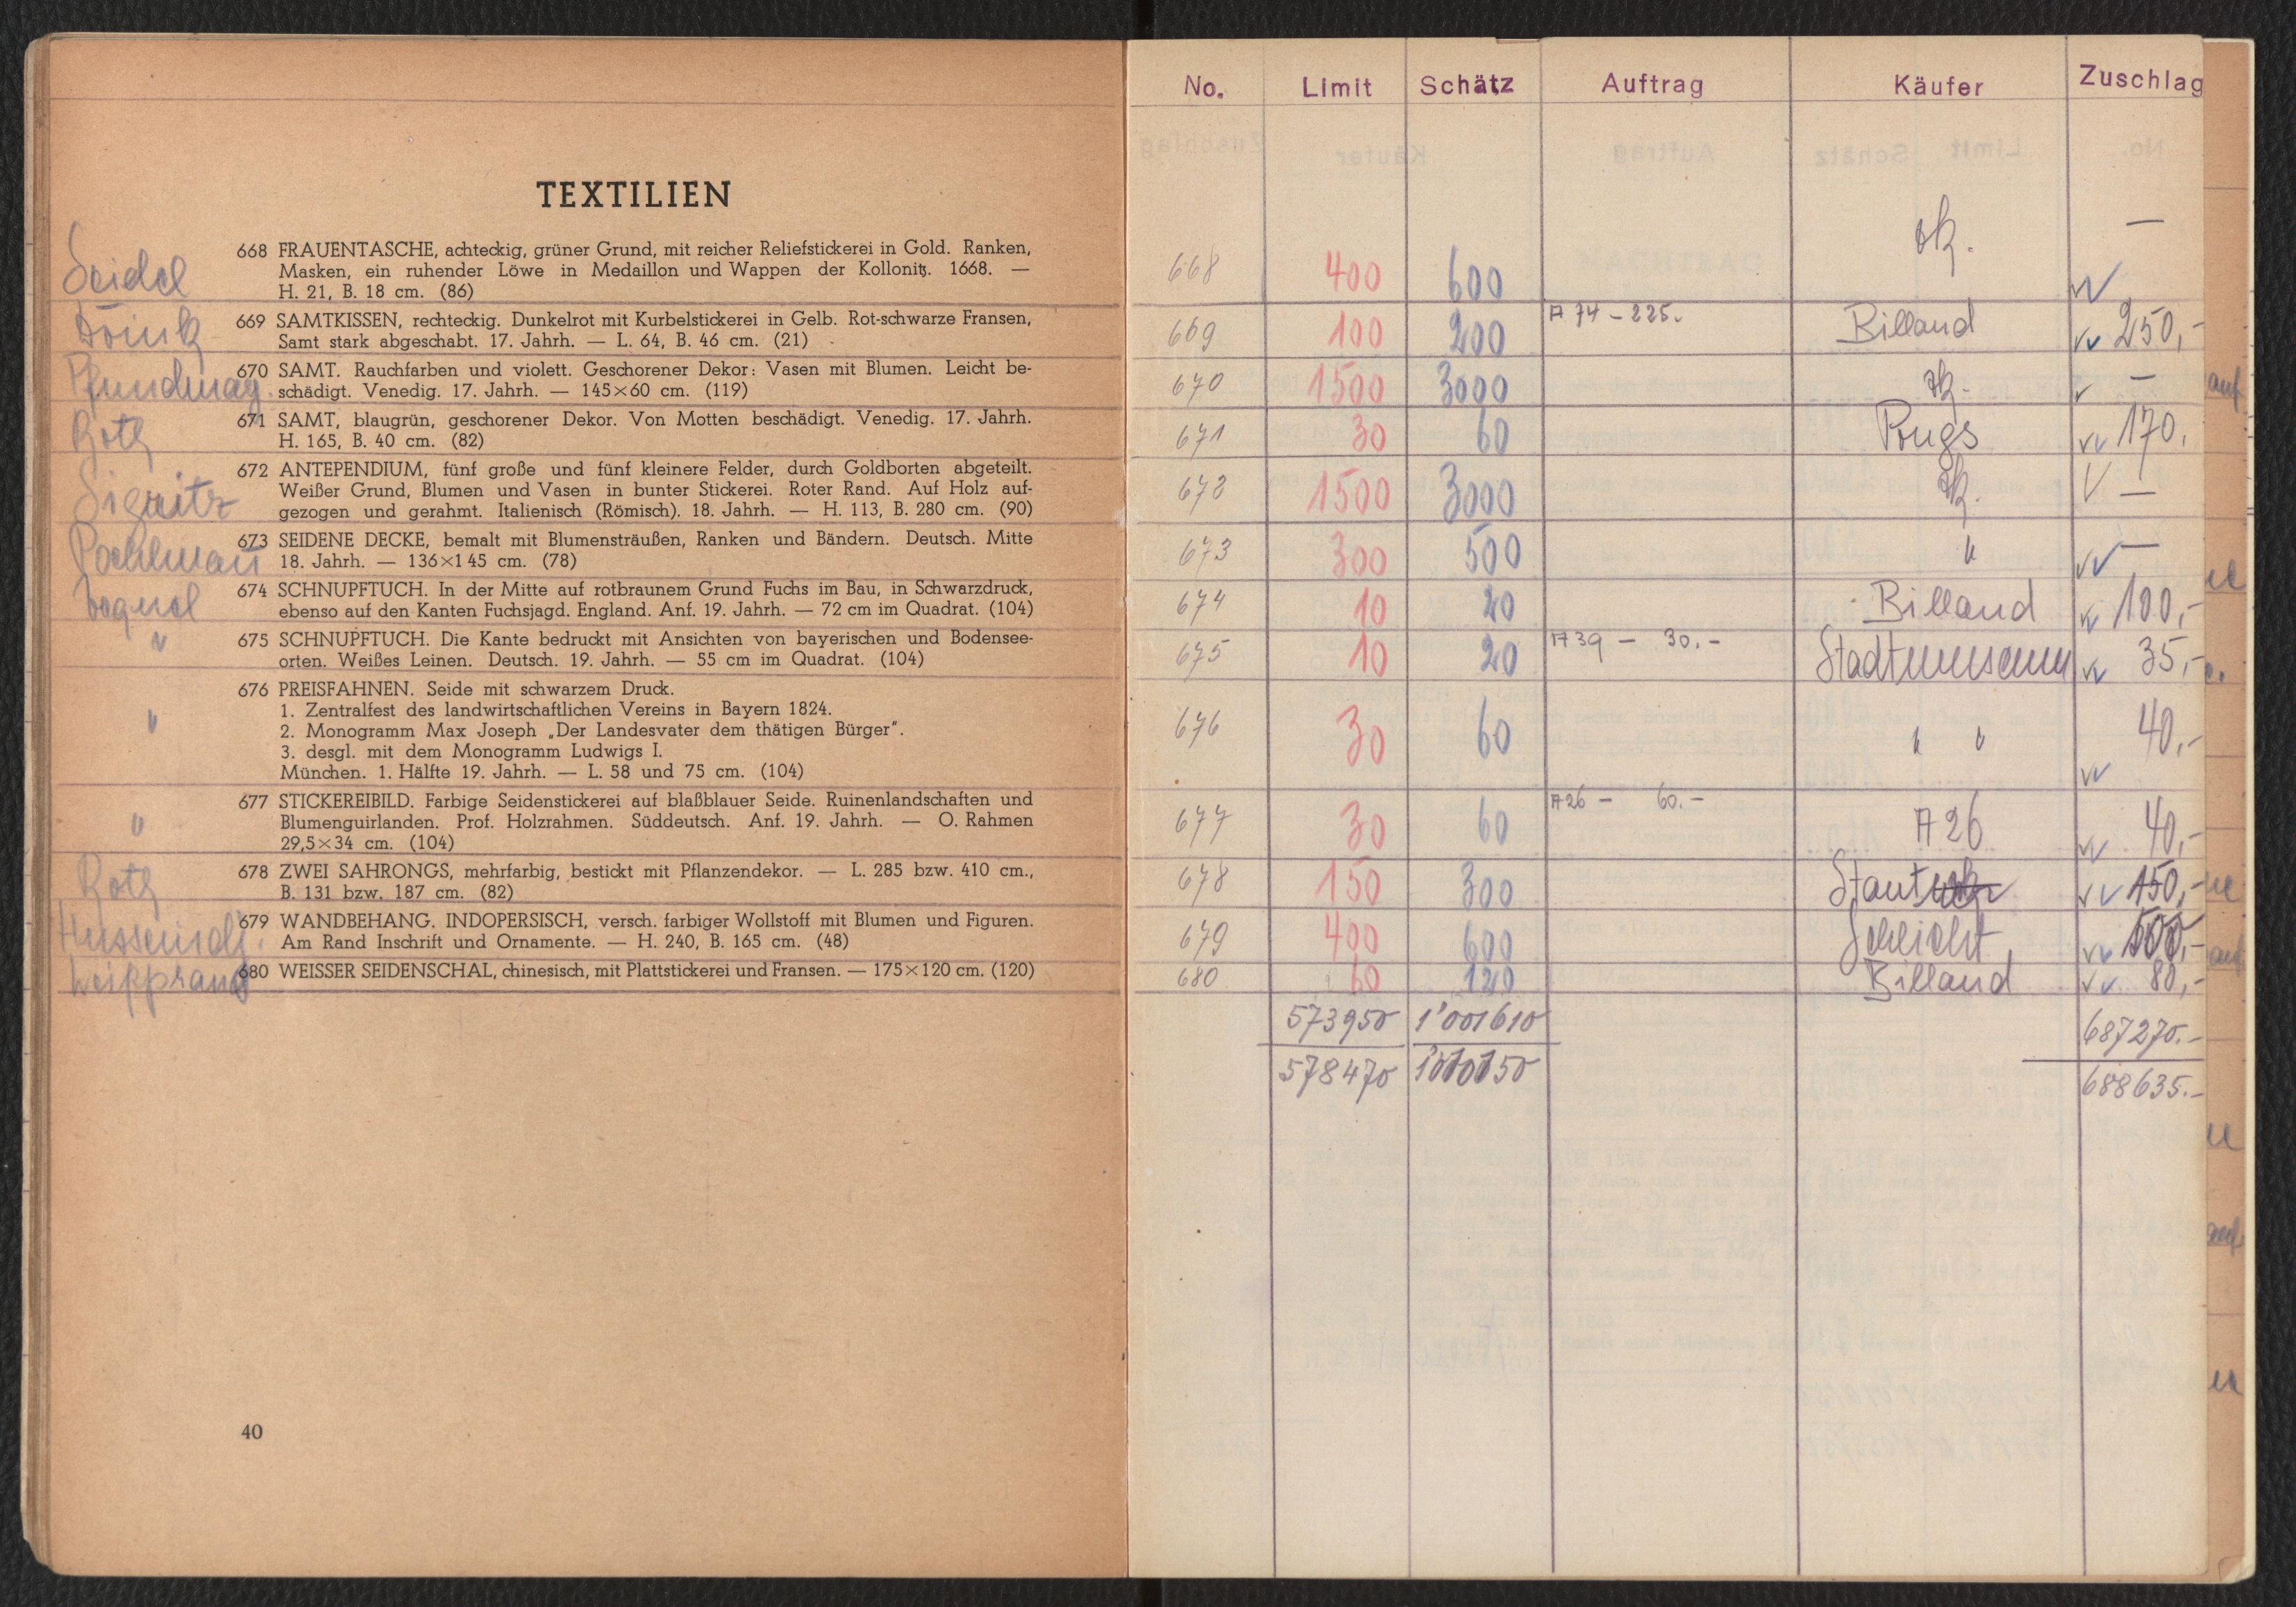 TEXTILIEN
Seidel
668 FRAUENTASCHE, achteckig, grüner Grund, mit reicher Reliefstickerei in Gold. Ranken,
Masken, ein ruhender Löwe in Medaillon und Wappen der Kollonitz. 1668. —
H. 21, B. 18 cm. (86)
669 SAMTKISSEN, rechteckig. Dunkelrot mit Kurbelstickerei in Gelb. Rot-schwarze Fransen,
Samt stark abgeschabt. 17. Jahrh. — L. 64, B. 46 cm. (21)
670 SAMT. Rauchfarben und violett. Geschorener Dekor: Vasen mit Blumen. Leicht be-
schädigt. Venedig. 17. Jahrh. — 145×60 cm. (119)
Roth
671 SAMT, blaugrün, geschorener Dekor. Von Motten beschädigt. Venedig. 17. Jahrh.
H. 165, B. 40 cm. (82)
672 ANTEPENDIUM, fünf große und fünf kleinere Felder, durch Goldborten abgeteilt.
Weißer Grund, Blumen und Vasen in bunter Stickerei. Roter Rand. Auf Holz auf-
gezogen und gerahmt. Italienisch (Römisch). 18. Jahrh. — H. 113, B. 280 cm. (90)
673 SEIDENE DECKE, bemalt mit Blumensträußen, Ranken und Bändern. Deutsch. Mitte
18. Jahrh. — 136×145 cm. (78)
674 SCHNUPFTUCH. In der Mitte auf rotbraunem Grund Fuchs im Bau, in Schwarzdruck,
ebenso auf den Kanten Fuchsjagd. England. Anf. 19. Jahrh. — 72 cm im Quadrat. (104)
"
675 SCHNUPFTUCH. Die Kante bedruckt mit Ansichten von bayerischen und Bodensee-
orten. Weißes Leinen. Deutsch. 19. Jahrh. — 55 cm im Quadrat. (104)
"
676 PREISFAHNEN. Seide mit schwarzem Druck.
1. Zentralfest des landwirtschaftlichen Vereins in Bayern 1824.
2. Monogramm Max Joseph „Der Landesvater dem thätigen Bürger".
3. desgl. mit dem Monogramm Ludwigs I.
München. 1. Hälfte 19. Jahrh. — L. 58 und 75 cm. (104)
"
677 STICKEREIBILD. Farbige Seidenstickerei auf blaßblauer Seide. Ruinenlandschaften und
Blumenguirlanden. Prof. Holzrahmen. Süddeutsch. Anf. 19. Jahrh. — O. Rahmen
29,5×34 cm. (104)
Roth
678 ZWEI SAHRONGS, mehrfarbig, bestickt mit Pflanzendekor. — L. 285 bzw. 410 cm.,
B. 131 bzw. 187 cm. (82)
679 WANDBEHANG. INDOPERSISCH, versch. farbiger Wollstoff mit Blumen und Figuren.
Am Rand Inschrift und Ornamente. — H. 240, B. 165 cm. (48)
680 WEISSER SEIDENSCHAL, chinesisch, mit Plattstickerei und Fransen. — 175×120 cm. (120)
40
No. Limit Schätz Auftrag Käufer Zuschlag
668 400 600 —
669 100 200 A 74 – 225.- Billand 250,-
670 1500 3000 —
671 30 60 170,
672 1500 3000 —
673 300 500 " —
674 10 20 Billand 100,-
675 10 20 A 39 – 30.- Stadtmuseum 35,-
676 30 60 " " 40,-
677 30 60 A 26 – 60.- A 26 40,-
678 150 300 150,-
679 400 600 Schlicht 500,-
680 60 120 Billand 80,-
573950 1'001610 687270.-
578470 688635.-